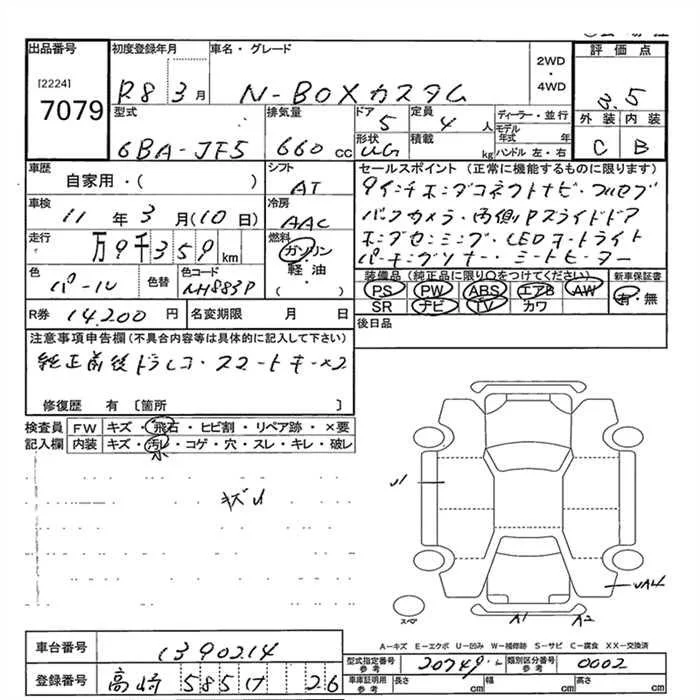 出品番号 初度登録年月 車名・グレード 2WD・4WD 評価点
[2224]
7079 R8 3月 N-BOXカスタム 3.5
型式 排気量 ドア 定員 ディーラー・並行 外装 内装
6BA-JF5 660cc 5 4人 モデル年式 年
形状 積載 ハンドル 左・右 C B
UG kg
車歴 自家用・( ) シフト AT セールスポイント (正常に機能するものに限ります)
車検 11年3月(10日) 冷房 AAC 9インチホンダコネクトナビ・フルセグ
バックカメラ・両側Pスライドドア
走行 万9千359km 燃料 ガソリン・軽油・( ) ホンダセンシング・LEDオートライト
パーキングソナー・シートヒーター
色 パール 色替 色コード NH883P 装備品 (純正品に限り○をつけてください) 新車保証書
PS PW ABS エアB AW 有・無
R券 14,200円 名変期限 月 日 SR ナビ TV カワ
注意事項申告欄(不具合内容等は具体的に記入して下さい) 後日品
純正前後ドラレコ・スマートキー×2
修復歴 有 〔箇所 〕
検査員 FW キズ・飛石・ヒビ割・リペア跡・×要
記入欄 内装 キズ・汚レ・コゲ・穴・スレ・キレ・破レ
小
キズU
U1
UA4
スペア A1 A2
A-キズ E-エクボ U-凹み W-補修跡 S-サビ C-腐食 XX-交換済
車台番号 1390214 型式指定番号 参考 20749 類別区分番号 参考 0002
登録番号 高崎 585 け 26 車庫証明用 参考 長さ cm 幅 cm 高さ cm